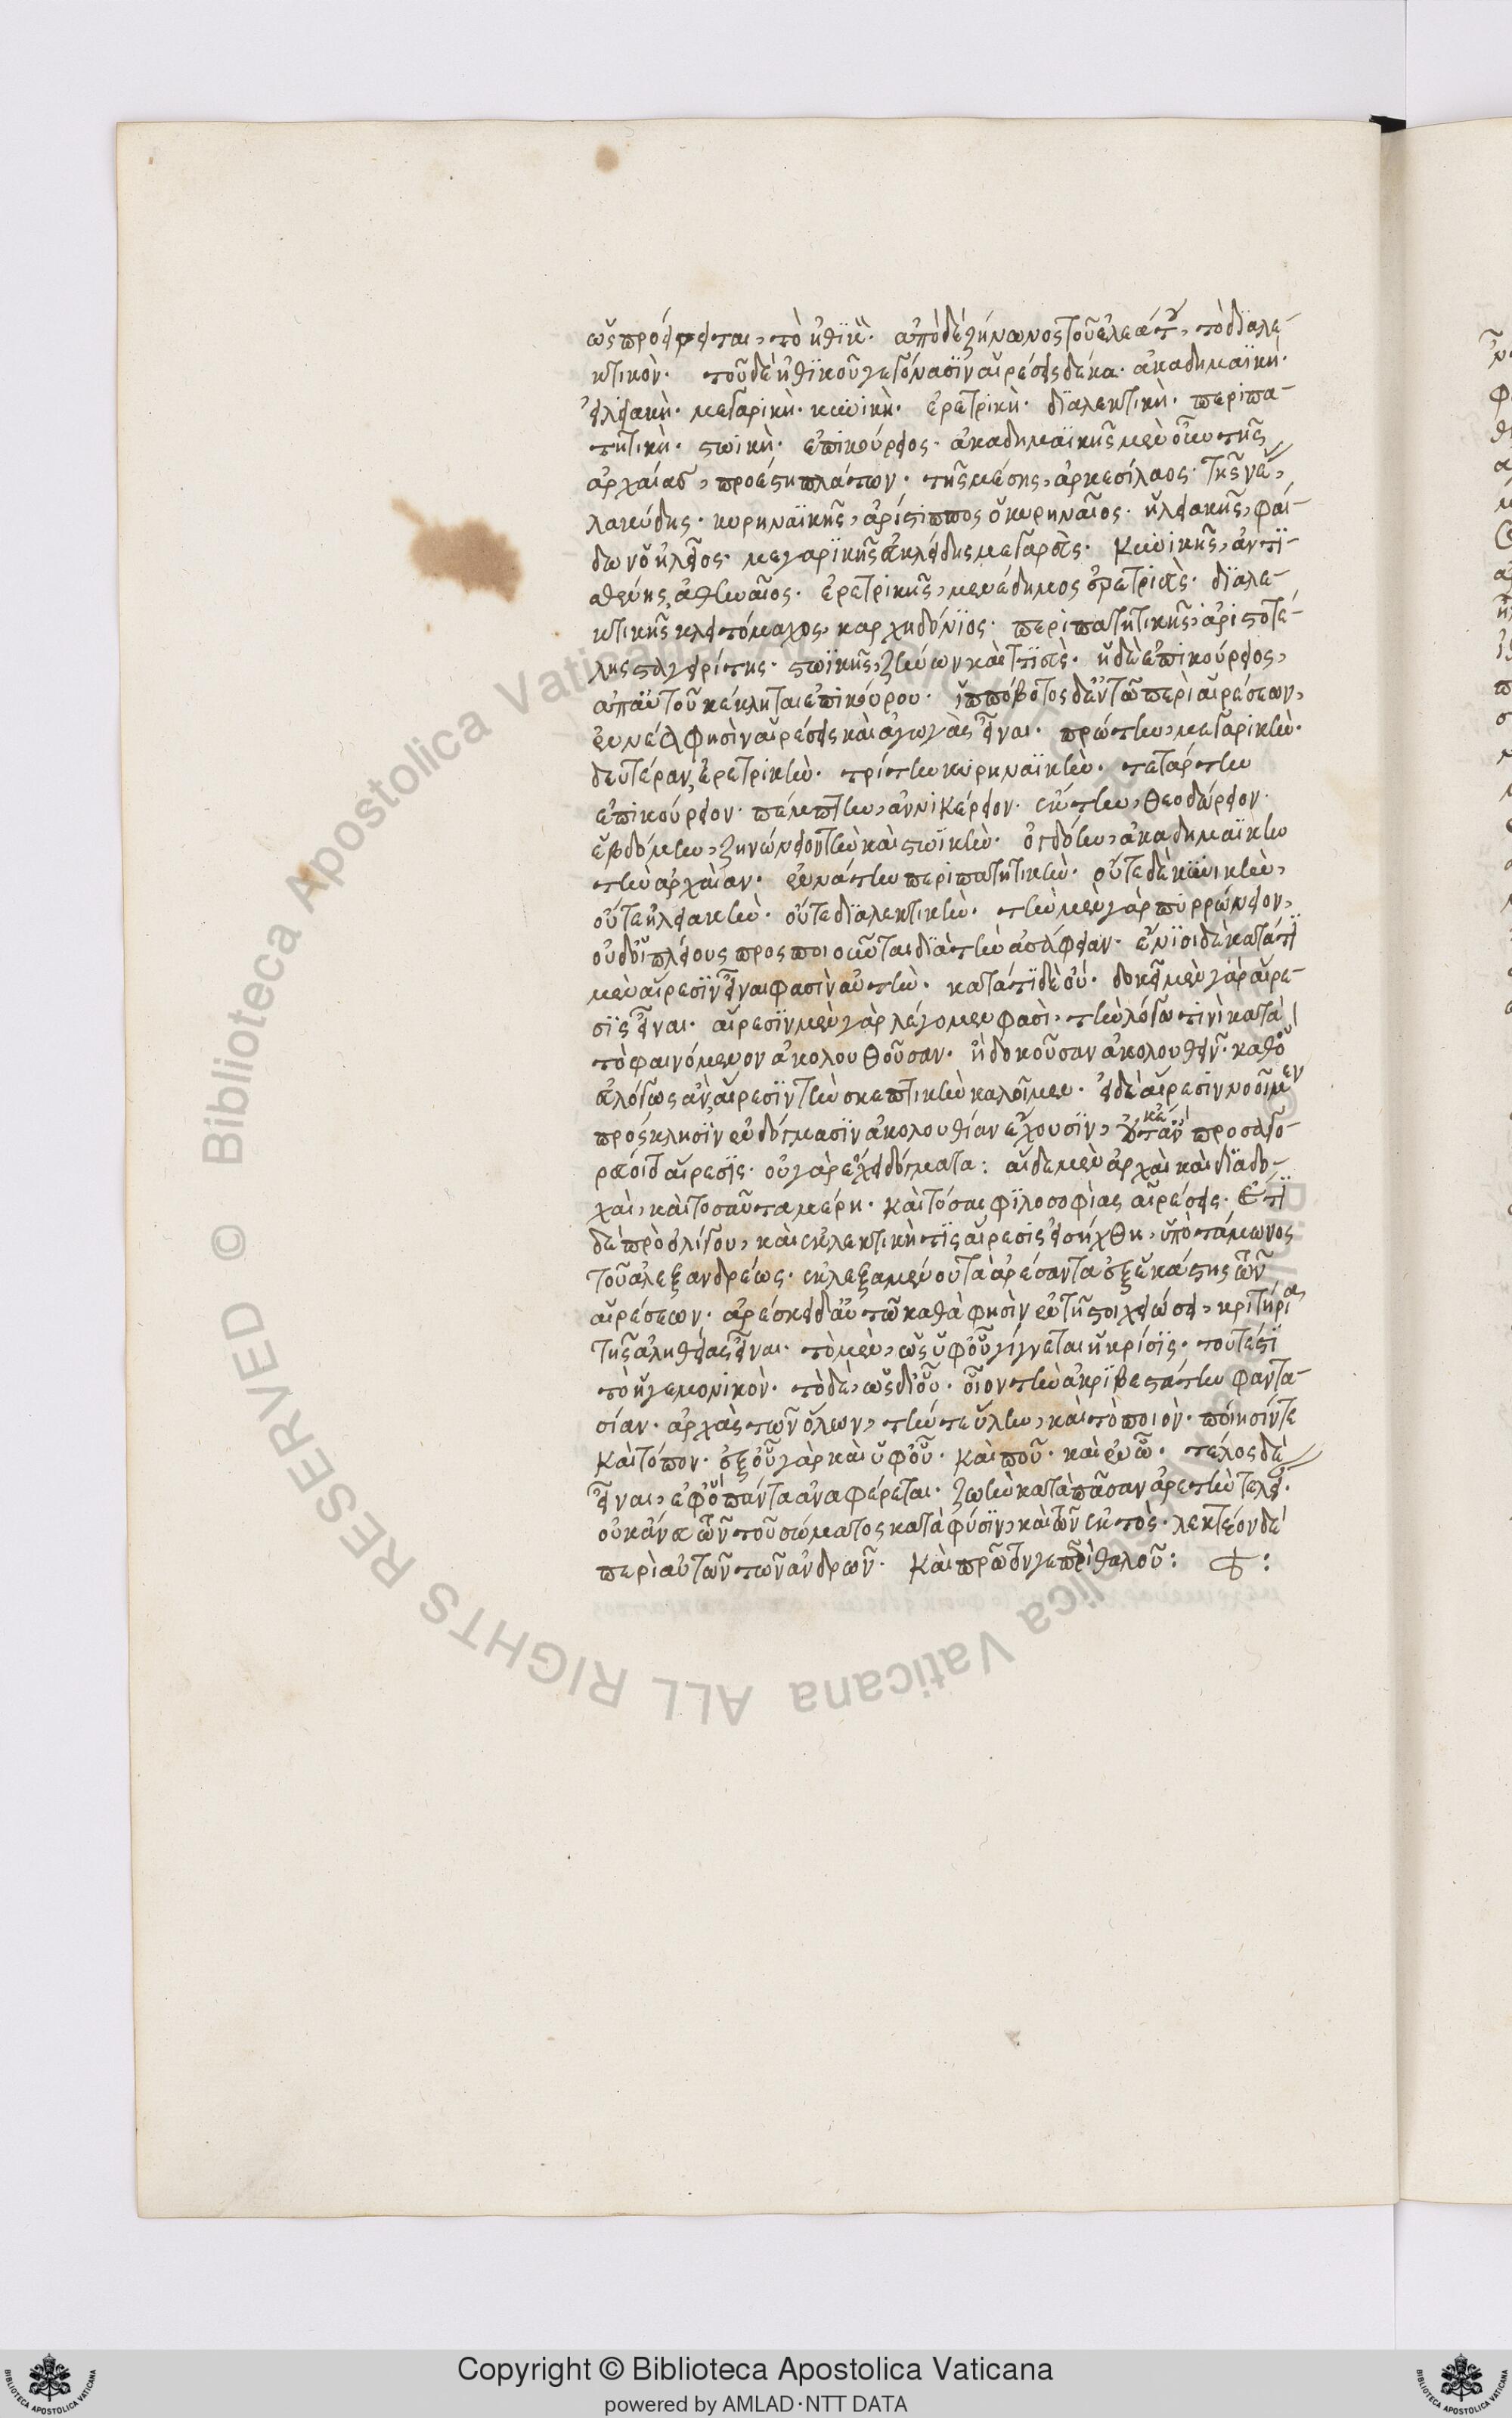 ὡς προείρηται, τὸ ἠθικὸ. ἀπὸ δὲ ζήνωνος τοῦ ἐλεάτου, τὸ διαλε-
κτικὸν. τοῦ δὲ ἠθικοῦ γεγόνασιν αἱρέσεις δέκα. ἀκαδημαϊκὴ.
ἠλειακὴ. μεγαρικὴ. κυνικὴ. ἐρετρικὴ. διαλεκτικὴ. περιπα-
τητικὴ. στωικὴ. ἐπικούρειος. ἀκαδημαϊκῆς μὲν οὖν τῆς
ἀρχαίας, προέστη πλάτων. τῆς μέσης, ἀρκεσίλαος. τῆς νέας,
λακύδης. κυρηναϊκῆς, ἀρίστιππος ὁ κυρηναῖος. ἠλειακῆς, φαί-
δων ὁ ἠλεῖος. μεγαρικῆς εὐκλείδης μεγαρεὺς. κυνικῆς, ἀντι-
σθένης ἀθηναῖος. ἐρετρικῆς, μενέδημος ἐρετριεὺς. διαλε-
κτικῆς κλειτόμαχος, καρχηδόνιος. περιπατητικῆς, ἀριστοτέ-
λης σταγειρίτης. στωϊκῆς, ζήνων κιτιεὺς. ἡ δὲ ἐπικούρειος,
ἀπ αὐτοῦ κέκληται ἐπικούρου. ἱππόβοτος δ ἐν τῷ περὶ αἱρέσεων,
ἐννέα φησὶν αἱρέσεις καὶ ἀγωγὰς εἶναι. πρώτην, μεγαρικὴν.
δευτέραν, ἐρετρικὴν. τρίτην κυρηναϊκὴν. τετάρτην
ἐπικούρειον. πέμπτην, ἀννικέρειον. ἕκτην, θεοδώρειον.
ἑβδόμην, ζηνώνειον τὴν καὶ στωϊκὴν. ὀγδόην, ἀκαδημαϊκὴν
τὴν ἀρχαίαν. ἐννάτην περιπατητικὴν. οὔτε δὲ κυνικὴν,
οὔτε ἠλειακὴν. οὔτε διαλεκτικὴν. τὴν μὲν γὰρ πυρρώνειον,
οὐδ οἱ πλείους προσποιοῦνται διὰ τὴν ἀσάφειαν. ἔνιοι δὲ κατά τι
μὲν αἵρεσιν εἶναι φασὶν αὐτὴν. κατά τι δὲ οὐ. δοκεῖ μὲν γὰρ αἵρε-
σις εἶναι. αἵρεσιν μὲν γὰρ λέγομεν φασὶ, τὴν λόγῳ τινὶ κατὰ
τὸ φαινόμενον ἀκολουθοῦσαν. ἢ δοκοῦσαν ἀκολουθεῖν. καθὸ
εὐλόγως ἂν, αἵρεσιν τὴν σκεπτικὴν καλοῖμεν. εἰ δὲ αἵρεσιν νοοῖμεν
πρόσκλησιν ἐν δόγμασιν ἀκολουθίαν ἔχουσιν, οὐκέτ ἂν προσαγο-
ρεύοιτ αἵρεσις. οὐ γὰρ ἔχει δόγματα: αἵδε μὲν ἀρχαὶ καὶ διαδο-
χαὶ, καὶ τοσαῦτα μέρη. καὶ τόσαι φιλοσοφίας αἱρέσεις. Ἔτι
δὲ πρὸ ὀλίγου, καὶ ἐκλεκτικὴ τις αἵρεσις εἰσήχθη, ὑπὸ ποτάμωνος
τοῦ ἀλεξανδρέως. ἐκλεξαμένου τὰ ἀρέσαντα ἐξ ἑκάστης τῶν
αἱρέσεων. ἀρέσκει δ αὐτῷ καθὰ φησὶν ἐν τῇ στοιχειώσει, κριτήρια
τῆς ἀληθείας εἶναι. τὸ μὲν, ὡς ὑφ οὗ γίγνεται ἡ κρίσις. τουτέστι
τὸ ἡγεμονικὸν. τὸ δὲ, ὡς δι οὗ. οἷον τὴν ἀκριβεστάτην φαντα-
σίαν. ἀρχὰς τῶν ὅλων, τήν τε ὕλην, καὶ τὸ ποιὸν. ποίησίν τε
καὶ τόπον. ἐξ οὗ γὰρ καὶ ὑφ οὗ. καὶ ποῦ. καὶ ἐν ᾧ. τέλος δὲ
εἶναι, ἐφ ὃ πάντα ἀναφέρεται. ζωὴν κατὰ πᾶσαν ἀρετὴν τελεί.
οὐκ ἄνευ τῶν τοῦ σώματος κατὰ φύσιν, καὶ τῶν ἐκτὸς. λεκτέον δὲ
περὶ αὐτῶν τῶν ἀνδρῶν. καὶ πρῶτόν γε περὶ θαλοῦ:
© Biblioteca Apostolica Vaticana ALL RIGHTS RESERVED
Copyright © Biblioteca Apostolica Vaticana
powered by AMLAD·NTT DATA